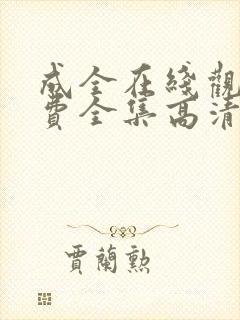 成全在綫觀
費全集高清
賈蘭勲